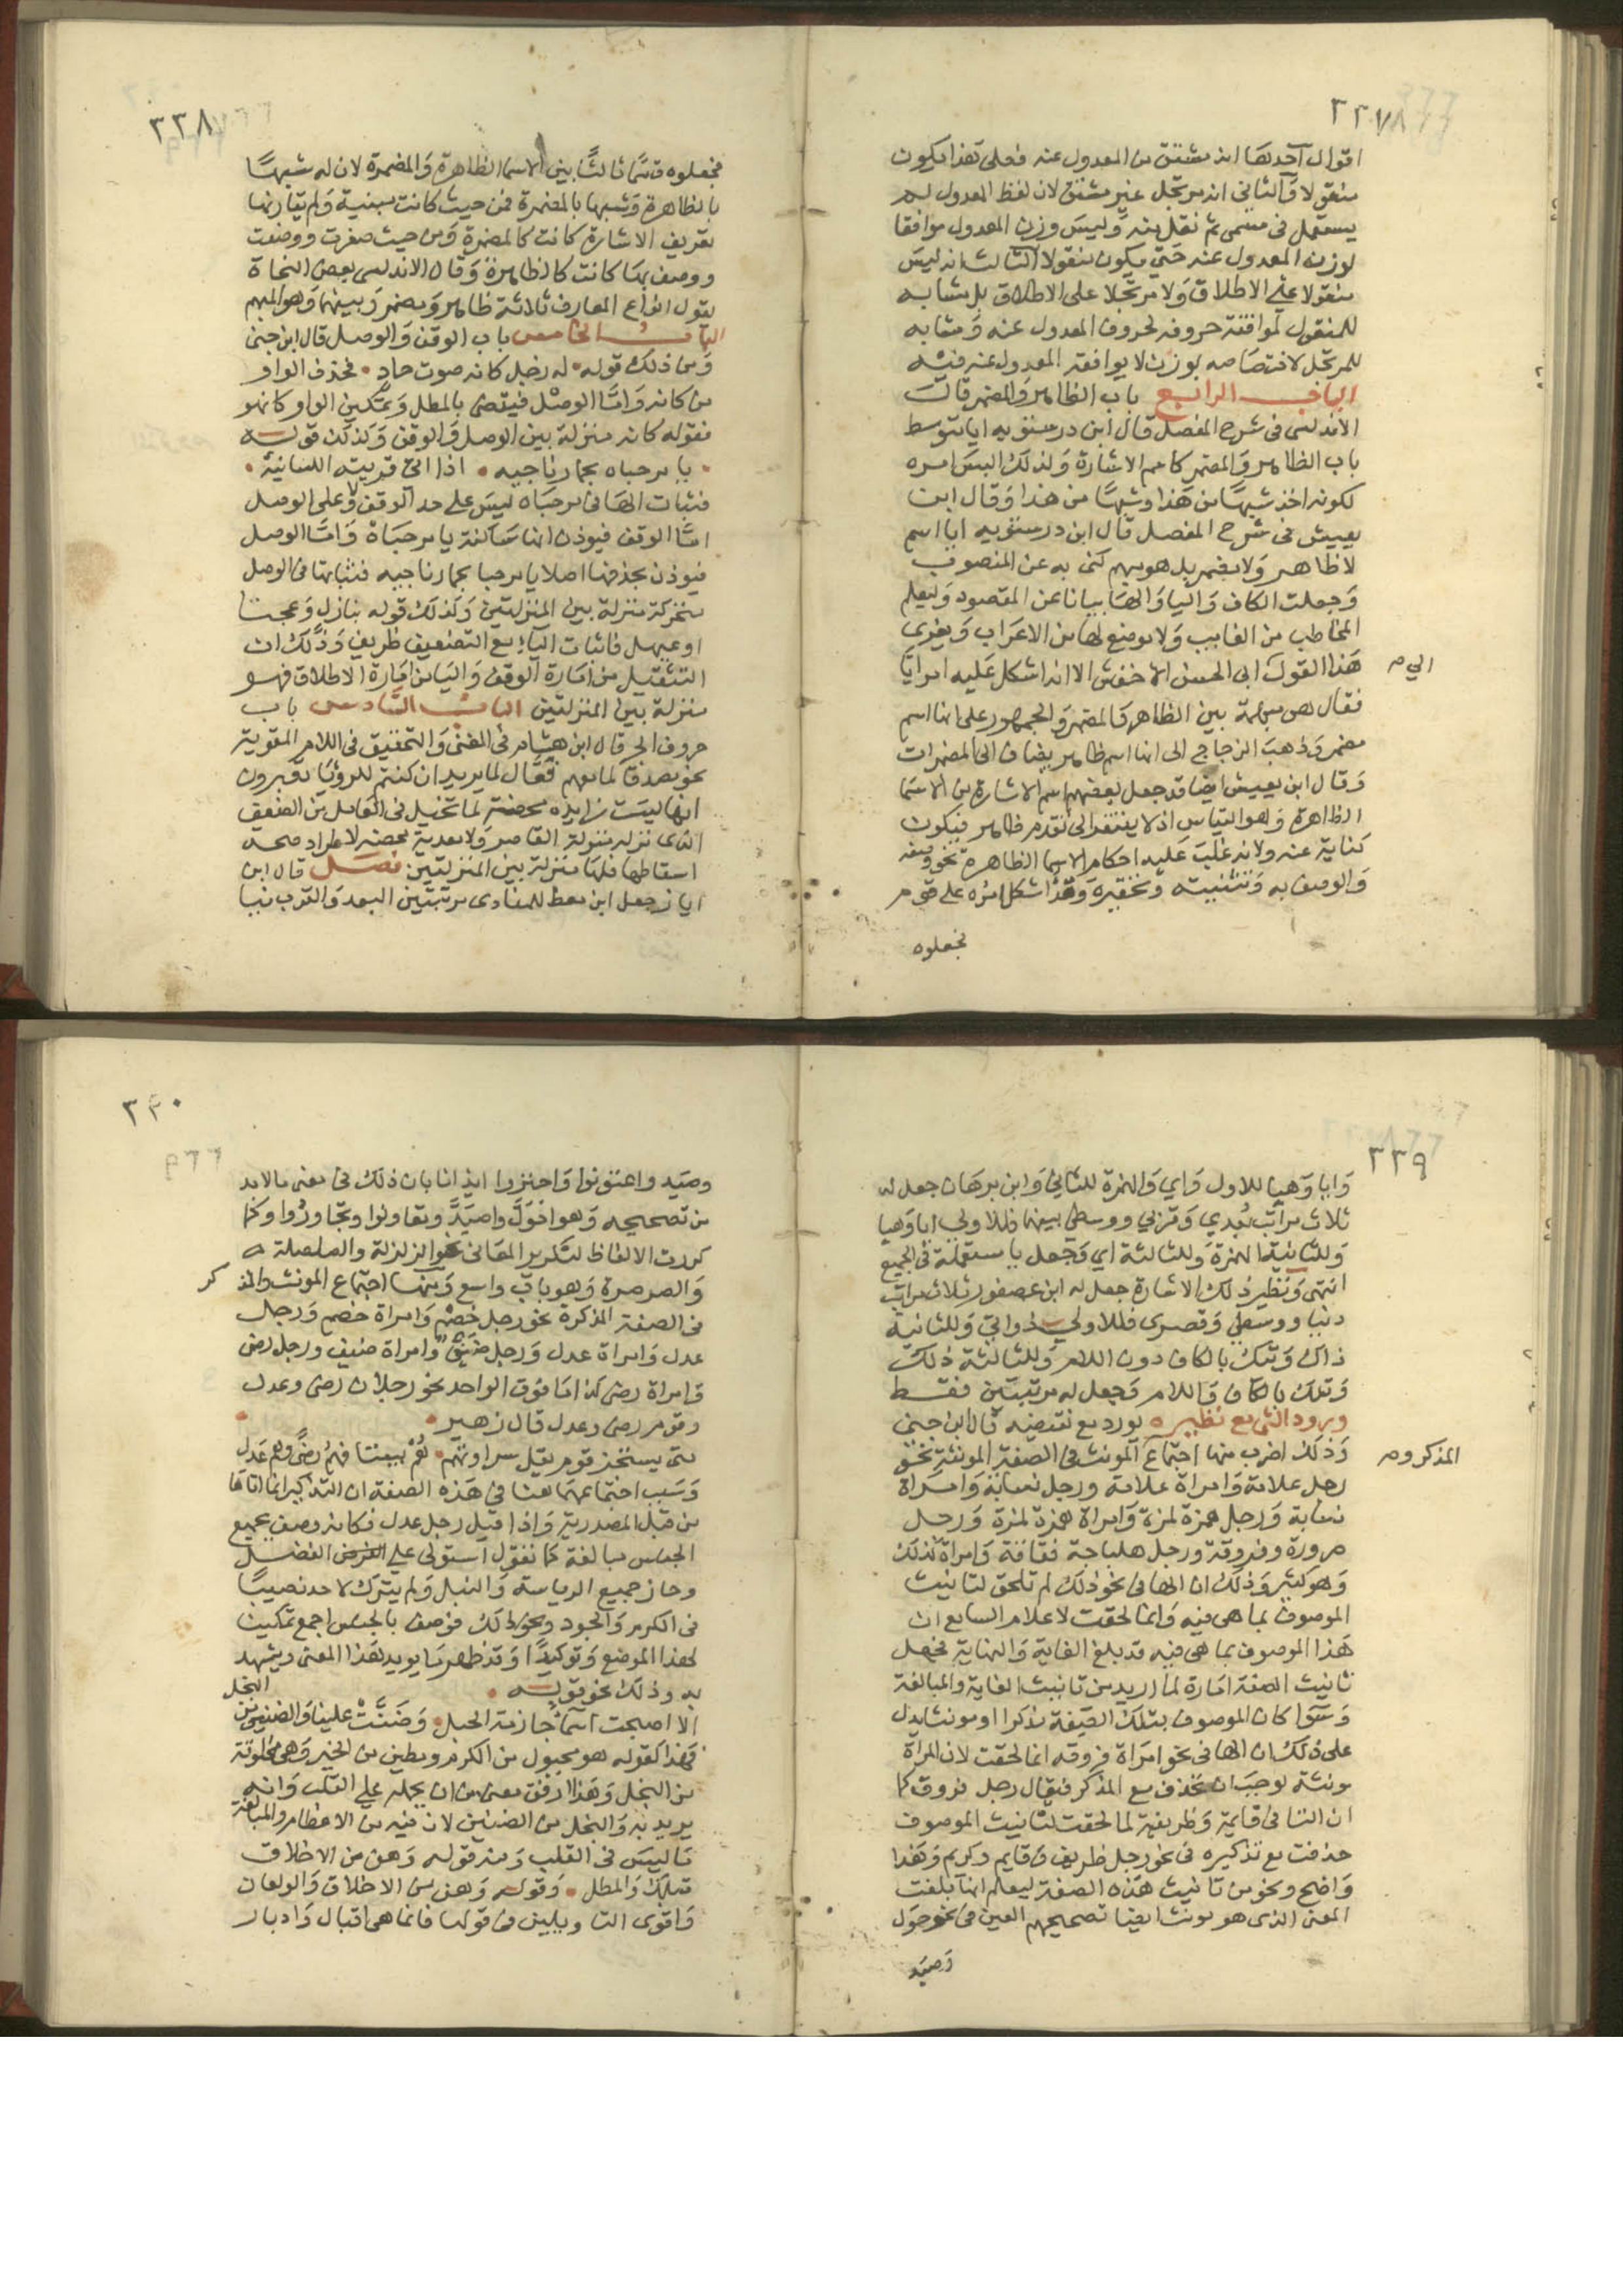 ٣٣٧
اقوال احدها انه مشتق من المعدول عنه فعلى هذا يكون
منقولا والثاني انه مرتجل غير مشتق لان لفظ المعدول لم
يستعمل في مسمى ثم نقل منه وليس وزن المعدول موافقا
لوزن المعدول عنه حتى يكون منقولا الثالث انه ليس
منقولا على الاطلاق ولا مرتجلا على الاطلاق بل مشابه
للمنقول لموافقة حروفه لحروف المعدول عنه ومشابه
للمرتجل لاختصاصه بوزن لا يوافقه المعدول عنه فيه
الباب الرابع باب الظاهر والمضمر قال
الاندلسي في شرح المفصل قال ابن درستويه ايا يتوسط
باب الظاهر والمضمر كاسم الاشارة ولذلك البس امره
لكونه اخذ شبها من هذا وشبها من هذا وقال ابن
يعيش في شرح المفصل قال ابن درستويه ايا اسم
لا ظاهر ولا مضمر بل هو مبهم كنى به عن المنصوب
وجعلت الكاف واليا والها بيانا عن المقصود وليعلم
المخاطب من الغايب ولا موضع لها من الاعراب ويعزى
هذا القول ابى الحسن الاخفش الا انه اشكل عليه امر ايا
الى صـ
فقال هي مبهمة بين الظاهر والمضمر والجمهور على انها اسم
مضمر وذهب الزجاج الى انها اسم ظاهر يضاف الى المضمرات
وقال ابن يعيش ايضا قد جعل بعضهم اسم الاشارة من الاسما
الظاهرة وهو القياس اذ لا يفتقر الى تقدم ظاهر فيكون
كناية عنه ولانه غلبت عليه احكام الاسما الظاهرة نحو وصفه
والوصف به وتثنيته وتحقيره وقد اشكل امره على قوم
فجعلوه
٣٣٨
فجعلوه قسما ثالثا بين الاسما الظاهرة والمضمرة لان له شبها
بالظاهرة وشبها بالمضمرة فمن حيث كانت مبنية ولم يفارقها
تعريف الاشارة كانت كالمضمرة ومن حيث صغرت ووصفت
ووصف بها كانت كالظاهرة وقال الاندلسي بعض النحاة
يقول انواع المعارف ثلاثة ظاهر ومضمر وبينهما وهو المبهم
الباب الخامس باب الوقف والوصل قال ابن جنى
ومن ذلك قوله ۰ له زجل كانه صوت حاد ۰ فحذف الواو
من كانه واما الوصل فيقضى بالمطل وتمكين الواو كانهو
فقوله كانه منزلة بين الوصل والوقف وكذلك قوله
۰ يا مرحباه بحمار ناجيه ۰ اذا اتى قربته للسانية ۰
فثبات الها في مرحباه ليس على حد الوقف ولا على الوصل
اما الوقف فيوذن انها ساكنة يا مرحباه واما الوصل
فيوذن بحذفها اصلا يا مرحبا بحمار ناجيه فثباتها في الوصل
متحركة منزلة بين المنزلتين وكذلك قوله ببازل وجنا
او عيهل فاثبات اليا مع التضعيف ظريف وذلك ان
التثقيل من امارة الوقف واليا من امارة الاطلاق فهو
منزلة بين المنزلتين الباب السادس باب
حروف الجر قال ابن هشام في المغني والتحقيق في اللام المقوية
نحو مصدقا لما معهم فعال لما يريد ان كنتم للرؤيا تعبرون
انها ليست زايده محضة لما تخيل في العامل من الضعف
الذى نزله منزلة القاصر ولا معدية محضة لاطراد صحة
اسقاطها فلها منزلة بين المنزلتين فصل قال ابن
اياز جعل ابن معط للمنادى مرتبتين البعد والقرب فيا
٣٣٩
وايا وهيا للاول واي والهمزة للثاني وابن برهان جعل له
ثلاث مراتب بعدى وقربي ووسطى بينهما فللاولى ايا وهيا
وللثانية الهمزة وللثالثة اي وجعل يا مستعملة في الجميع
انتهى ونظير ذلك الاشارة جعل له ابن عصفور ثلاث مراتب
دنيا ووسطى وقصرى فللاولى ذا وتى وللثانية
ذاك وتيك بالكاف دون اللام وللثالثة ذلك
وتلك بالكاف واللام وجعل له مرتبتين فقط
ورود الشى مع نظيره مورده مع نقيضه قال ابن جني
وذلك اضرب منها اجتماع المونث في الصفة المونثة نحو
المذكر و صـ
رجل علامة وامراة علامة ورجل نسابة وامراة
نسابة ورجل همزة لمزة وامراة همزة لمزة ورجل
صرورة وفروقة ورجل هلباجة فقاقة وامراة كذلك
وهو كثير وذلك ان الها في نحو ذلك لم تلحق لتانيث
الموصوف بما هي فيه وانما لحقت لاعلام السامع ان
هذا الموصوف بما هي فيه قد بلغ الغاية والنهاية فجعل
تانيث الصفة امارة لما اريد من تانيث الغاية والمبالغة
وسوا كان الموصوف بتلك الصفة مذكرا او مونثا يدل
على ذلك ان الها في نحو امراة فروقه انما لحقت لان المراة
مونثة لوجب ان تحذف مع المذكر فيقال رجل فروق كما
ان التا في قايمة وظريفة لما لحقت لتانيث الموصوف
حذفت مع تذكيره في نحو رجل ظريف وقايم وكريم وهذا
واضح ونحو من تانيث هذه الصفة ليعلم انها بلغت
المعنى الذى هو مونث ايضا تصحيحهم العين في نحو حول
وصيد
٣٤٠
وصيد واعتونوا واجتوروا ايذانا بان ذلك في معنى ما لا بد
من تصحيحه وهو احول واصيد وتعاونوا وتجاوروا وكما
كررت الالفاظ لتكرير المعاني نحو الزلزلة والصلصلة
والصرصرة وهو باب واسع ومنها اجتماع المونث والمذكر
في الصفة المذكرة نحو رجل خصم وامراة خصم ورجل
عدل وامراة عدل ورجل ضيف وامراة ضيف ورجل رضى
وامراة رضى كذا ما فوق الواحد نحو رجلان رضى وعدل
وقوم رضى وعدل قال زهير ۰
متى يشتجر قوم يقل سراوتهم ۰ هم بيننا فهم رضى وهم عدل
وسبب اجتماعهما هنا في هذه الصفة ان التذكير انما اتاها
من قبل المصدرية واذا قيل رجل عدل فكانه وصف بجميع
الجنس مبالغة كما تقول استولى على الفضل
وحاز جميع الرياسة والنبل ولم يترك لاحد نصيبا
في الكرم والجود ونحو ذلك فوصف بالجنس اجمع تمكينا
لهذا الموضع وتوكيدا وقد ظهر ما يويد هذا المعنى ويشهد
به وذلك نحو قوله ۰
الا اصبحت اسما جاذمة الحبل ۰ وضنت علينا والضنين من البخل
فهذا كقوله هو مجبول من الكرم ومطين من الخير وهي مخلوقة
من البخل وهذا ارفق معنى من ان يحمله على القلب وانه
يريد به والبخل من الضنين لان فيه من الاعظام والمبالغة
ما ليس في القلب ومنه قوله وهن من الاخلاف
قبلك والمطل ۰ وقوله وهن من الاخلاف والولعان
واقوى التاويلين في قولها فانما هي اقبال وادبار